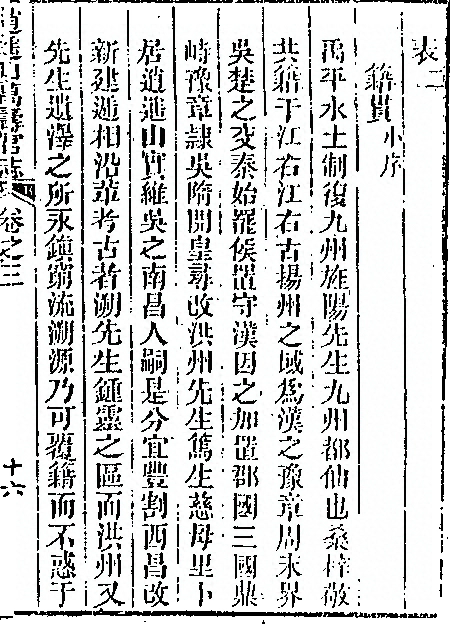 表二
籍貫小序
禹平水土制復九州旌陽先生九州都仙也桑梓敬
共籍于江右江右古揚州之域爲漢之豫章周末界
吳楚之交秦始罷侯置守漢因之加置郡國三國鼎
峙豫章隸吳隋開皇尋改洪州先生篤生慈母里卜
居逍遙山實維吳之南昌人嗣是分宜豐割西昌改
新建遞相沿革考古者溯先生鍾靈之區而洪州又
先生遺澤之所永鎮窮流溯源乃可覆籍而不惑于
逍遙山萬壽宮志 卷之三 十六